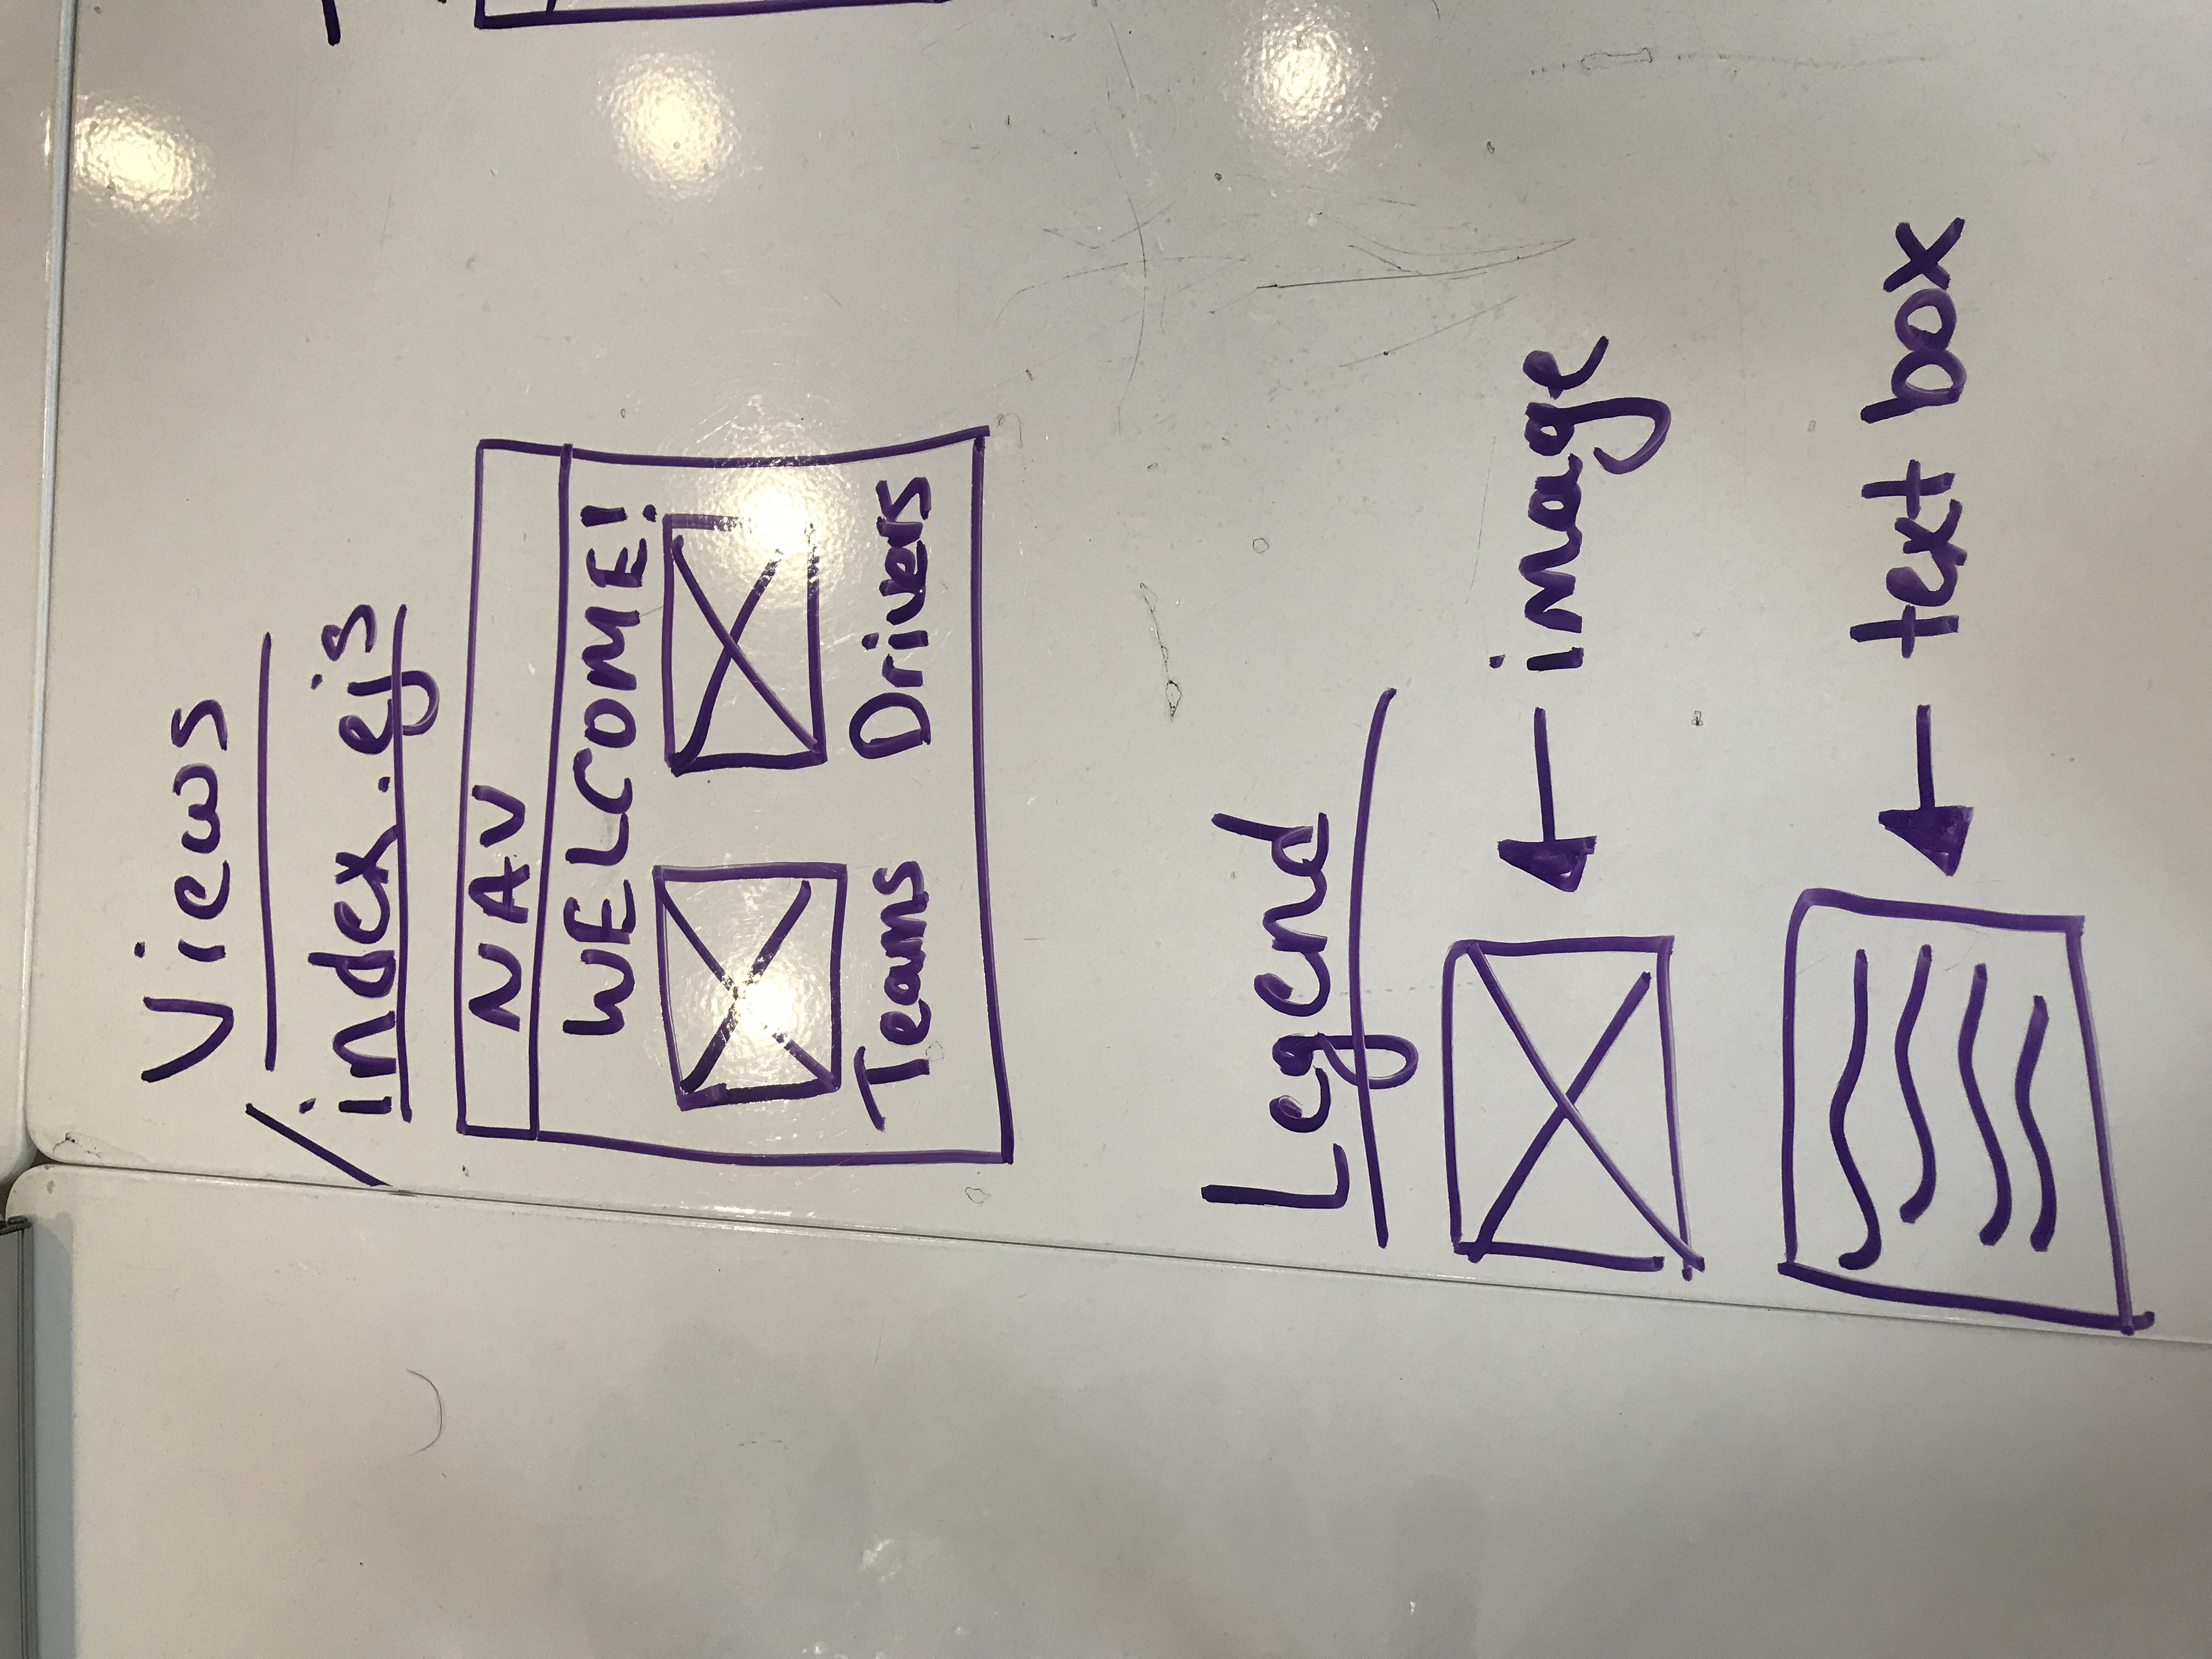 Views
/index.ejs
NAV
WELCOME!
Teams Drivers
Legend
image
text box